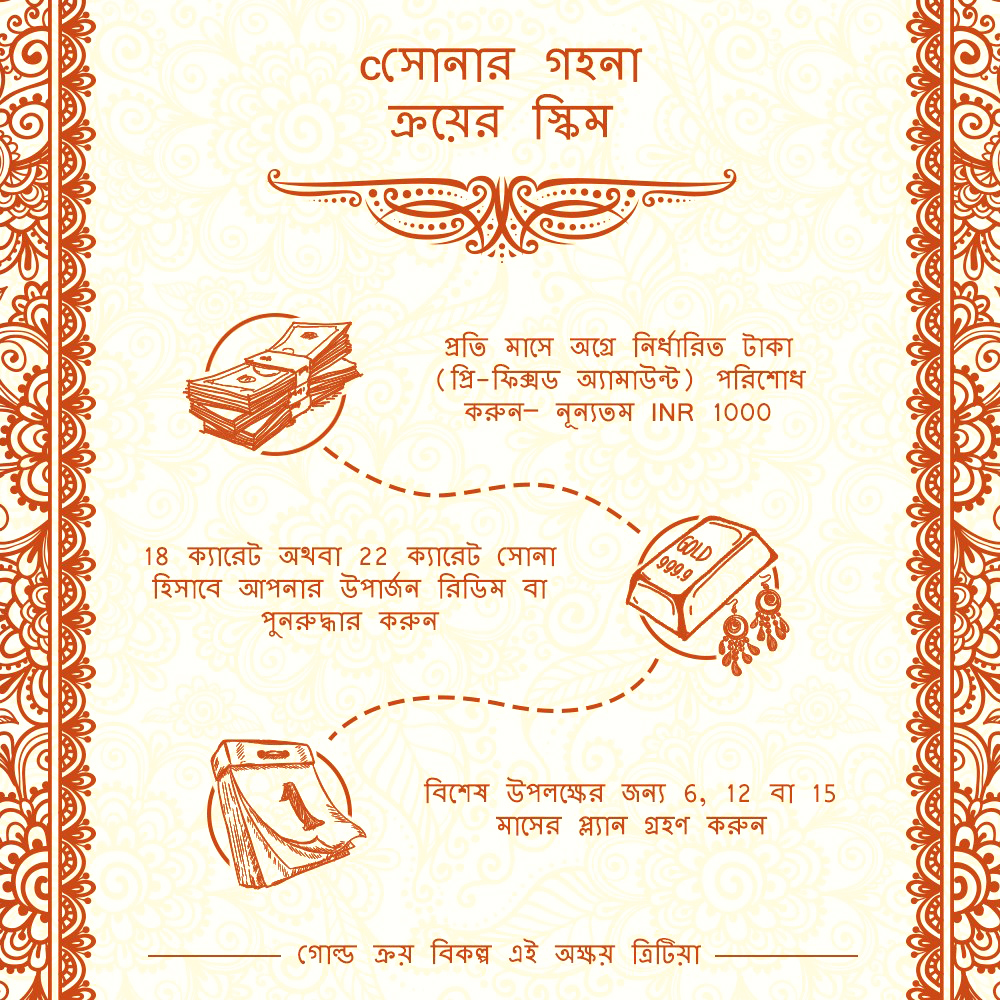 cসোনার গহনা
ক্রয়ের স্কিম
প্রতি মাসে অগ্রে নির্ধারিত টাকা
(প্রি-ফিক্সড অ্যামাউন্ট) পরিশোধ
করুন– নূন্যতম INR 1000
GOLD
999.9
18 ক্যারেট অথবা 22 ক্যারেট সোনা
হিসাবে আপনার উপার্জন রিডিম বা
পুনরুদ্ধার করুন
1
বিশেষ উপলক্ষের জন্য 6, 12 বা 15
মাসের প্ল্যান গ্রহণ করুন
গোল্ড ক্রয় বিকল্প এই অক্ষয় ত্রিটিয়া